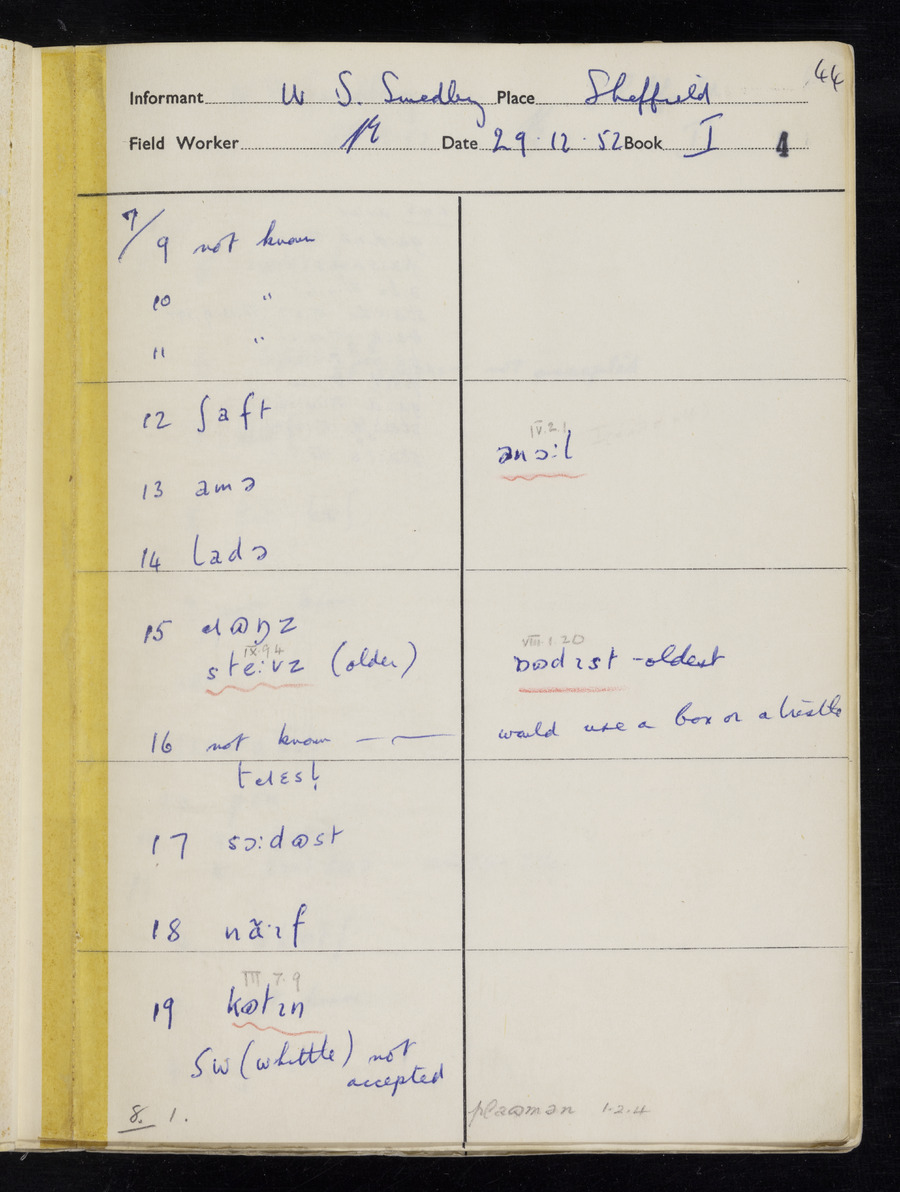 44
Informant W S. Smedley Place Sheffield
Field Worker Date 29.12.52 Book I 4
7/9 not known
10 "
11 "
12 ʃaft
IV.2.1
ənɔ:l
13 amə
14 ladə
15
IX.9.4
ste:vz (older)
VIII.1.20
-oldest
16 not known — would use a box or a trestle
17 sɔ:dɷst
18
III 7.9
19 kɷtɪn
SW (whittle) not
accepted
8. 1.
plaɷmən 1.2.4